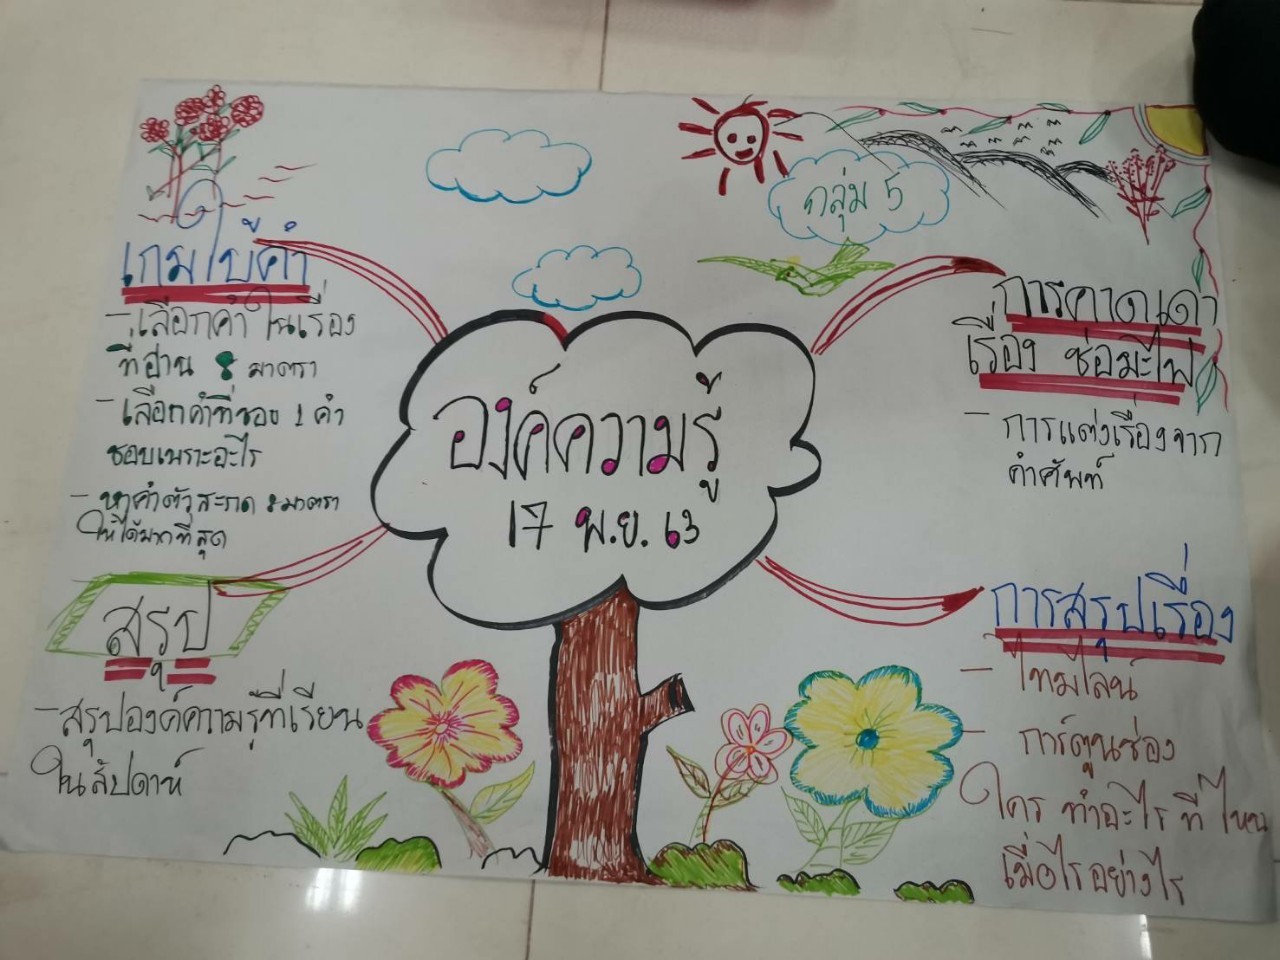 กลุ่ม 5
องค์ความรู้
17 พ.ย. 63
เกมใบ้คำ
- เลือกคำในเรื่อง
ที่อ่าน 8 มาตรา
- เลือกคำที่ชอบ 1 คำ
ชอบเพราะอะไร
- หาคำตัวสะกด 8 มาตรา
ให้ได้มากที่สุด
สรุป
- สรุปองค์ความรู้ที่เรียน
ในสัปดาห์
การคาดเดา
เรื่อง ช่อมะไฟ
- การแต่งเรื่องจาก
คำศัพท์
การสรุปเรื่อง
- ไทม์ไลน์
- การ์ตูนช่อง
ใคร ทำอะไร ที่ไหน
เมื่อไร อย่างไร